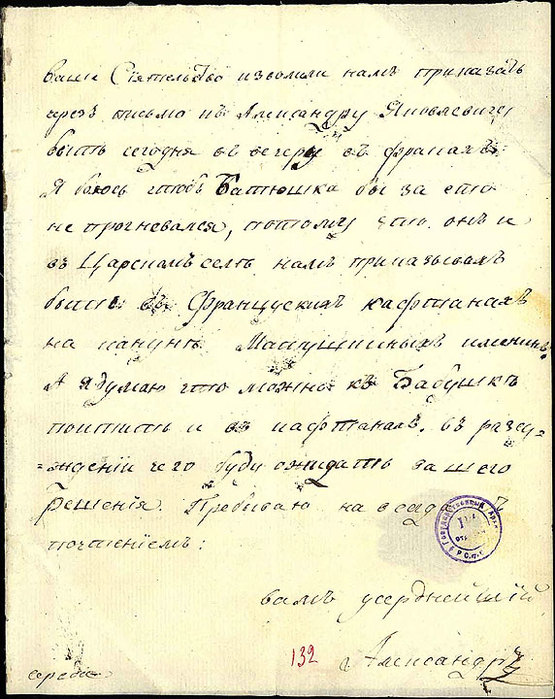 ваше Сіятельство изволили намъ приказать
чрезъ письмо къ Александру Яковлевичу
быть сегодня въ вечеру въ фракахъ:
Я боюсь чтобъ Батюшка бы за ето
не прогневался, потому что онъ и
въ Царскомъ селѣ намъ приказывалъ
быть въ Француских кафтанахъ
на канунѣ Матушкиныхъ именинъ.
А я думаю что можно къ Бабушкѣ
поитить и въ кафтанахъ. въ разсу-
=жденіи чего буду ожидать вашего
решенія. Пребываю на всегда съ
почтеніемъ:
вамъ усерднейшій
Александръ
середа
132
Государственный
Р.С.Ф.С.Р.